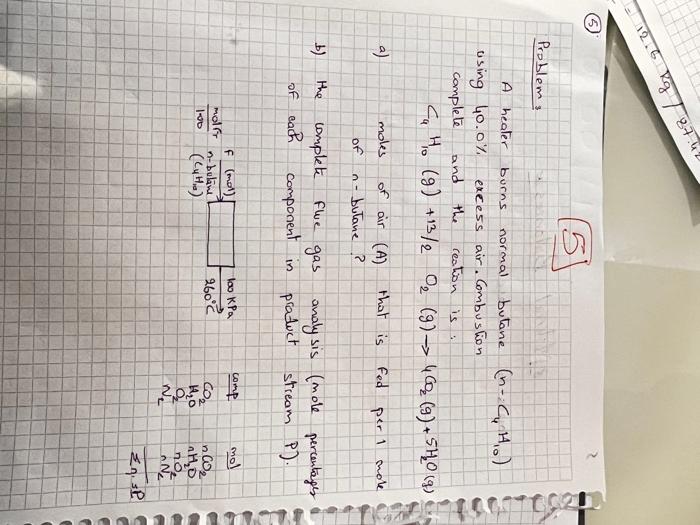 = 12.6 kg / 27.4
5
5
Problem:
A heater burns normal butane (n-C4H10)
using 40.0% excess air. Combustion
complete and the reation is:
C4H10 (g) + 13/2 O2 (g) → 4CO2 (g) + 5H2O (g)
a) moles of air (A) that is fed per 1 mole
of n-butane?
b) the complete flue gas analysis (mole percentages
of each component in product stream P).
F (mol)
n-butane
(C4H10)
100 kPa
260°C
comp mol
CO2 nCO2
H2O nH2O
O2 nO2
N2 nN2
Σni=P